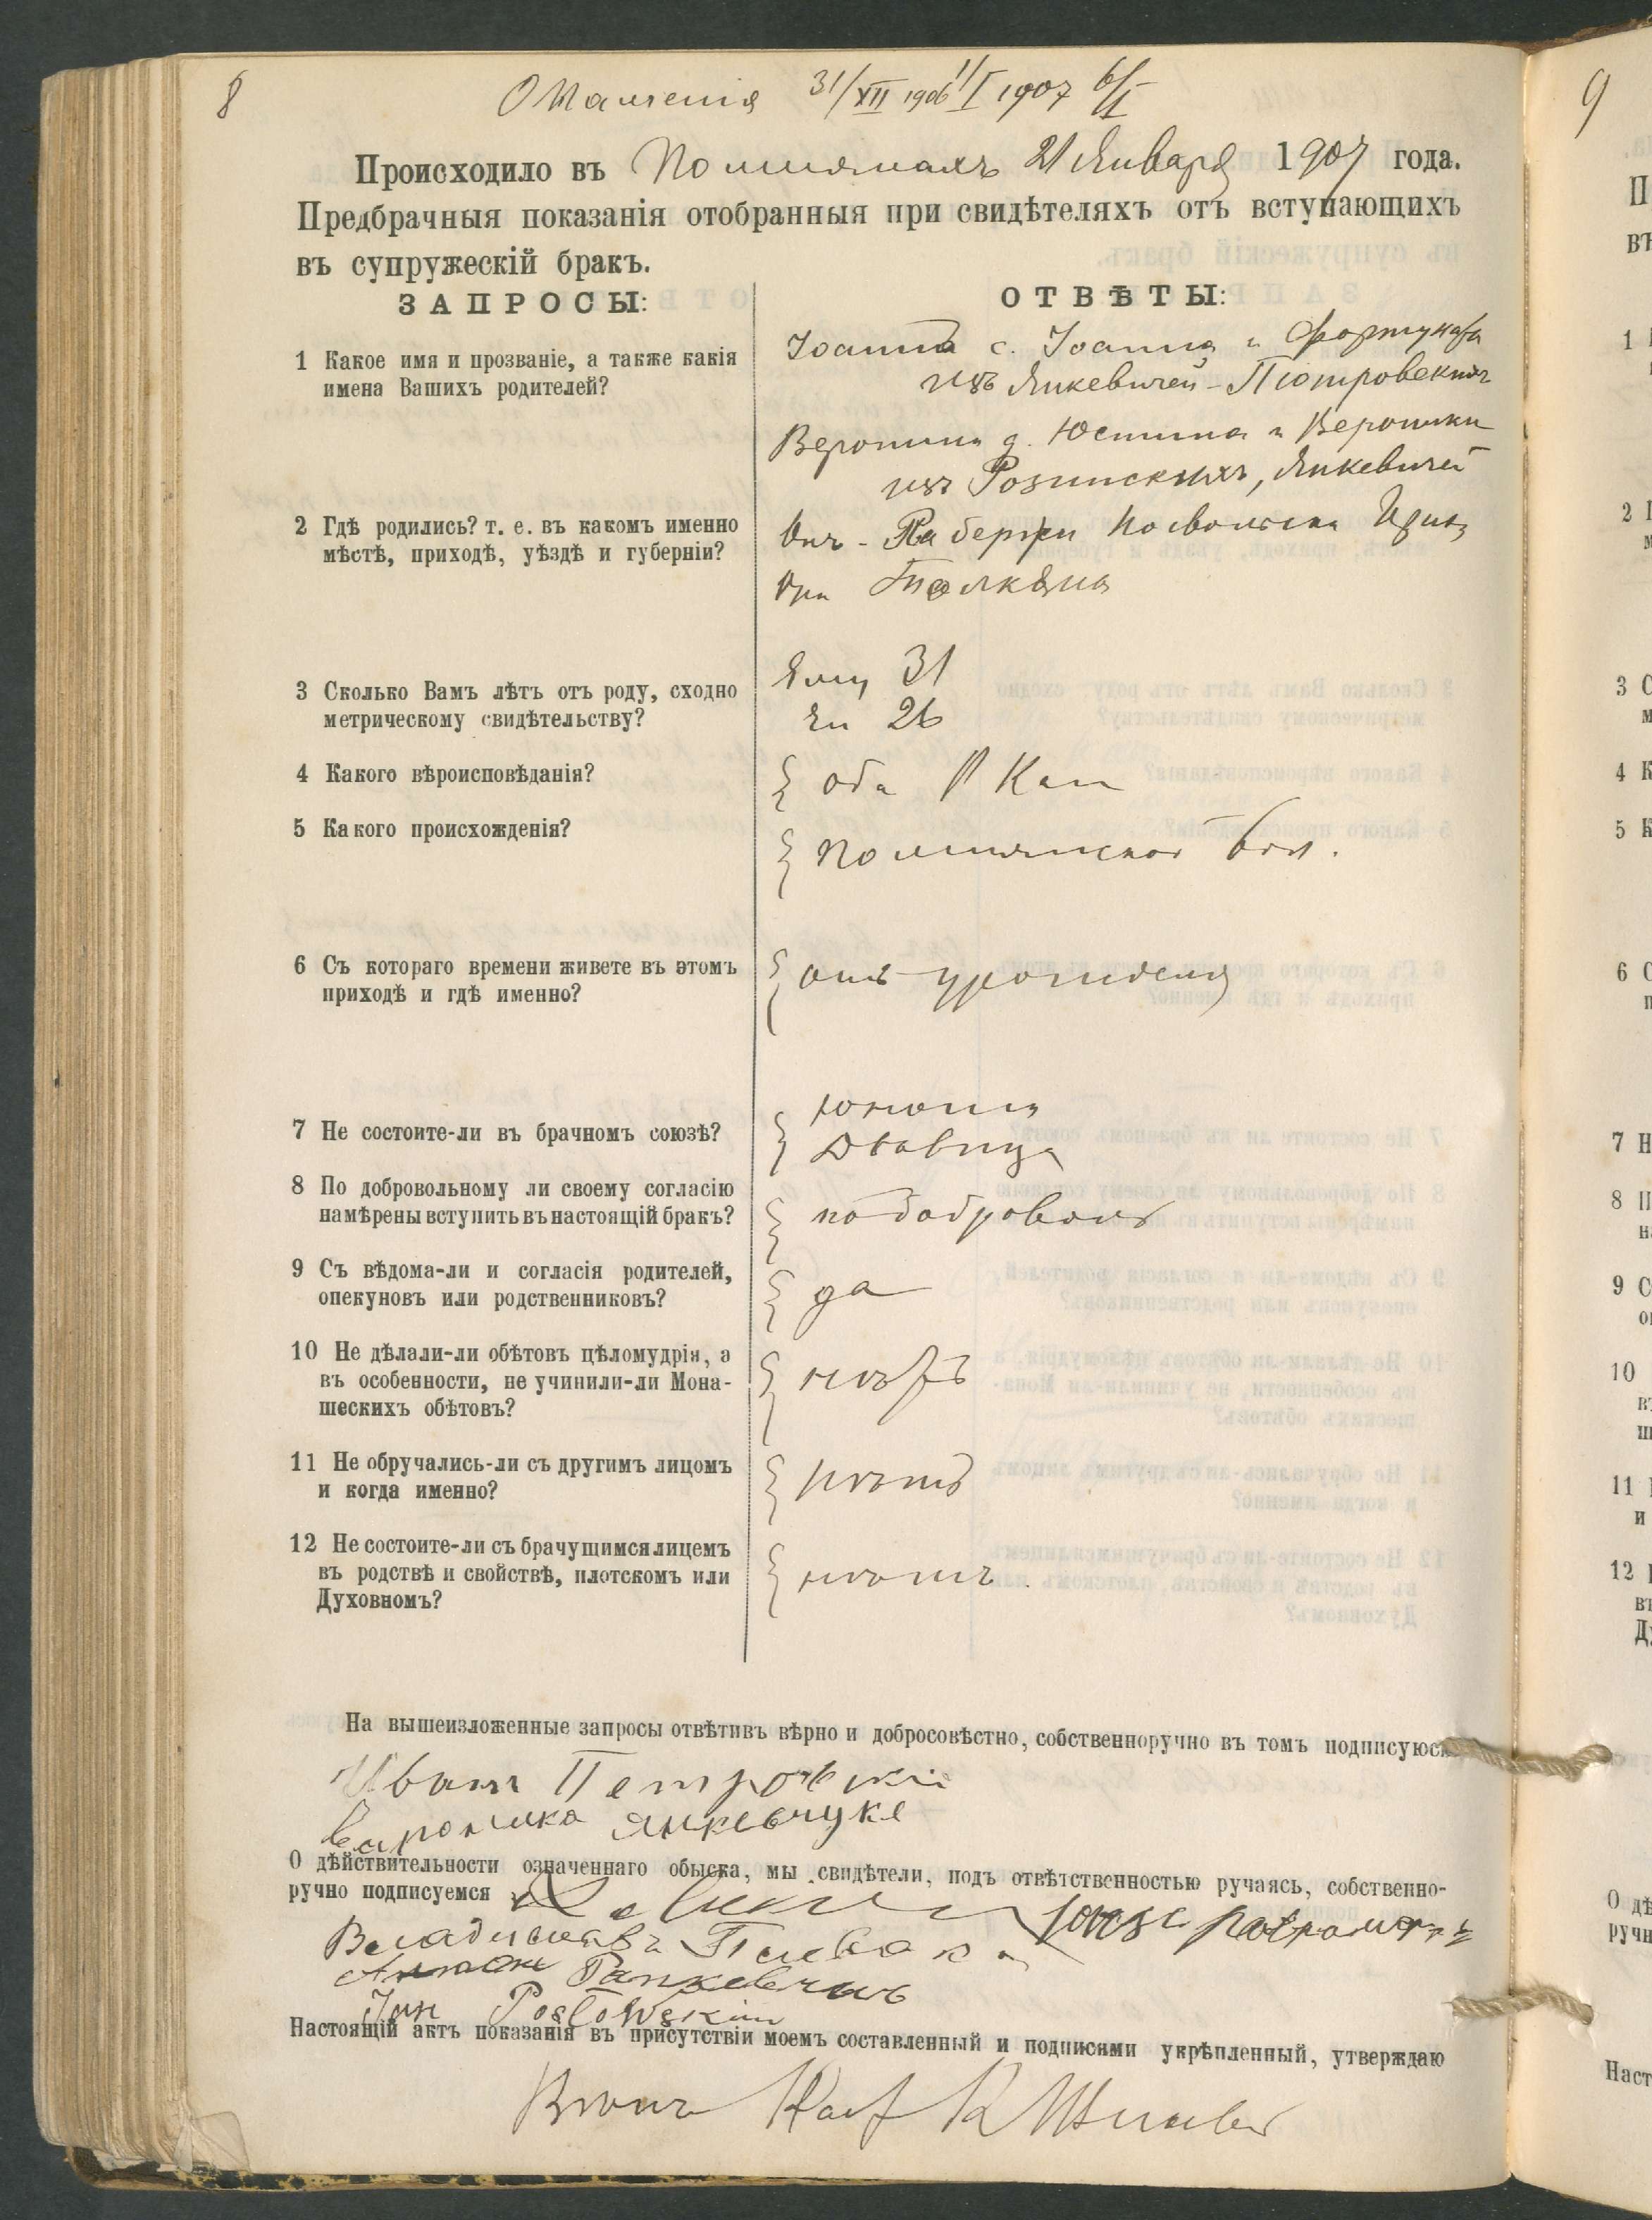 8
Оглашенія 31/XII 1906 1/I 1907 6/I
Происходило въ 21 Января 1907 года.
Предбрачныя показанія отобранныя при свидѣтеляхъ отъ вступающихъ
въ супружескій бракъ.
ЗАПРОСЫ:
ОТВѢТЫ:
1 Какое имя и прозваніе, а также какія
имена Вашихъ родителей?
Іоаннъ с. Іоанна и Фортуната
изъ Янкевичей-Піотровскихъ
Вероника д. Юстина и Вероники
изъ Розинскихъ, Янкевичей
2 Гдѣ родились? т. е. въ какомъ именно
мѣстѣ, приходѣ, уѣздѣ и губерніи?
Онъ -
Она
3 Сколько Вамъ лѣтъ отъ роду, сходно
метрическому свидѣтельству?
Ему 31
Ей 26
4 Какого вѣроисповѣданія?
оба Р Кат
5 Какого происхожденія?
вол.
6 Съ котораго времени живете въ этомъ
приходѣ и гдѣ именно?
отъ урожденія
7 Не состоите-ли въ брачномъ союзѣ?
юноша
дѣвица
8 По добровольному ли своему согласію
намѣрены вступить въ настоящій бракъ?
по добровольн
9 Съ вѣдома-ли и согласія родителей,
опекуновъ или родственниковъ?
да
10 Не дѣлали-ли обѣтовъ цѣломудрія, а
въ особенности, не учинили-ли Мона-
шескихъ обѣтовъ?
нѣтъ
11 Не обручались-ли съ другимъ лицомъ
и когда именно?
нѣтъ
12 Не состоите-ли съ брачущимся лицемъ
въ родствѣ и свойствѣ, плотскомъ или
Духовномъ?
нѣтъ.
На вышеизложенные запросы отвѣтивъ вѣрно и добросовѣстно, собственноручно въ томъ подписуюсь
Иванъ Петровскій
Вероника
О дѣйствительности означеннаго обыска, мы свидѣтели, подъ отвѣтственностью ручаясь, собственно-
ручно подписуемся
Владиславъ
Антон
Jan Posłowskim
Настоящій актъ показанія въ присутствіи моемъ составленный и подписями укрѣпленный, утверждаю
9